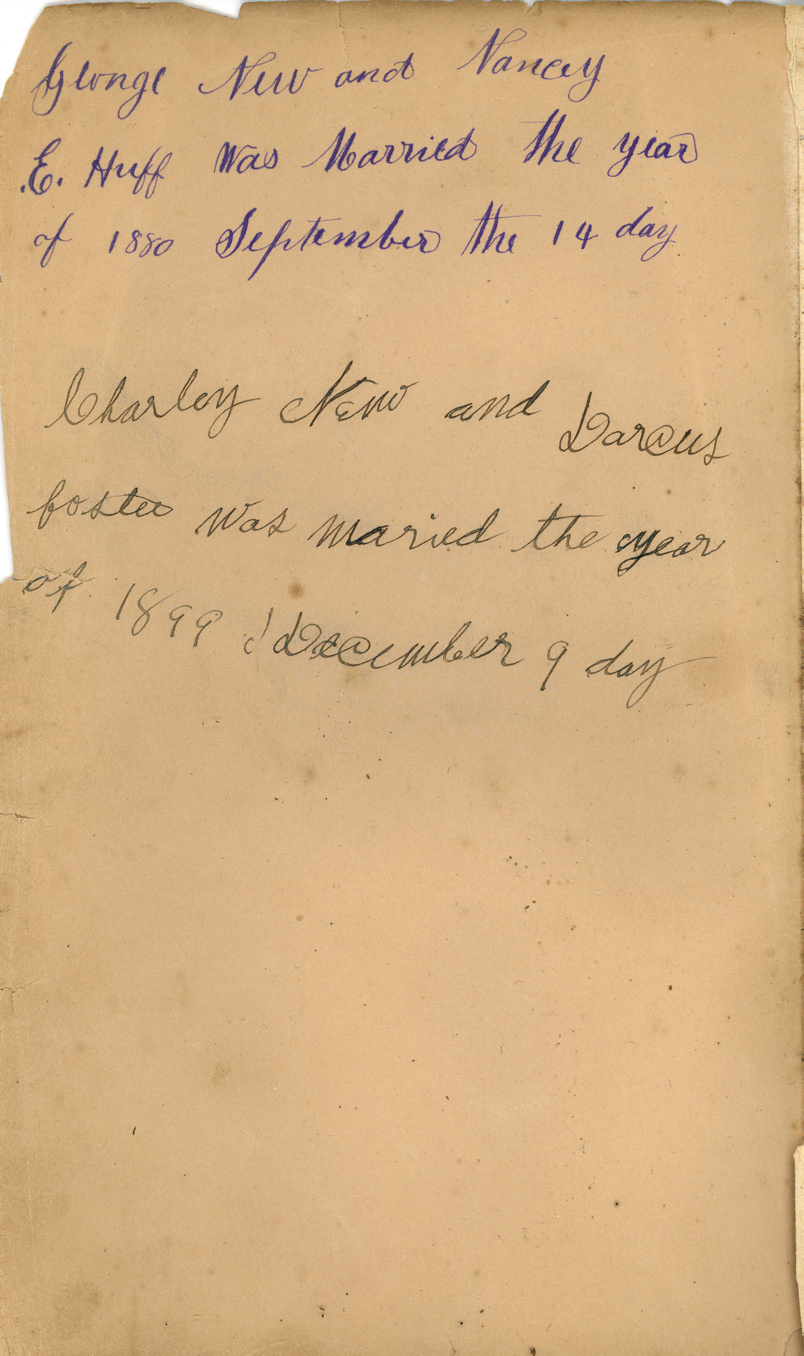 George New and Nancy
E. Huff Was Married the year
of 1880 September the 14 day
Charley New and Darcus
foster was maried the year
of 1899 December 9 day